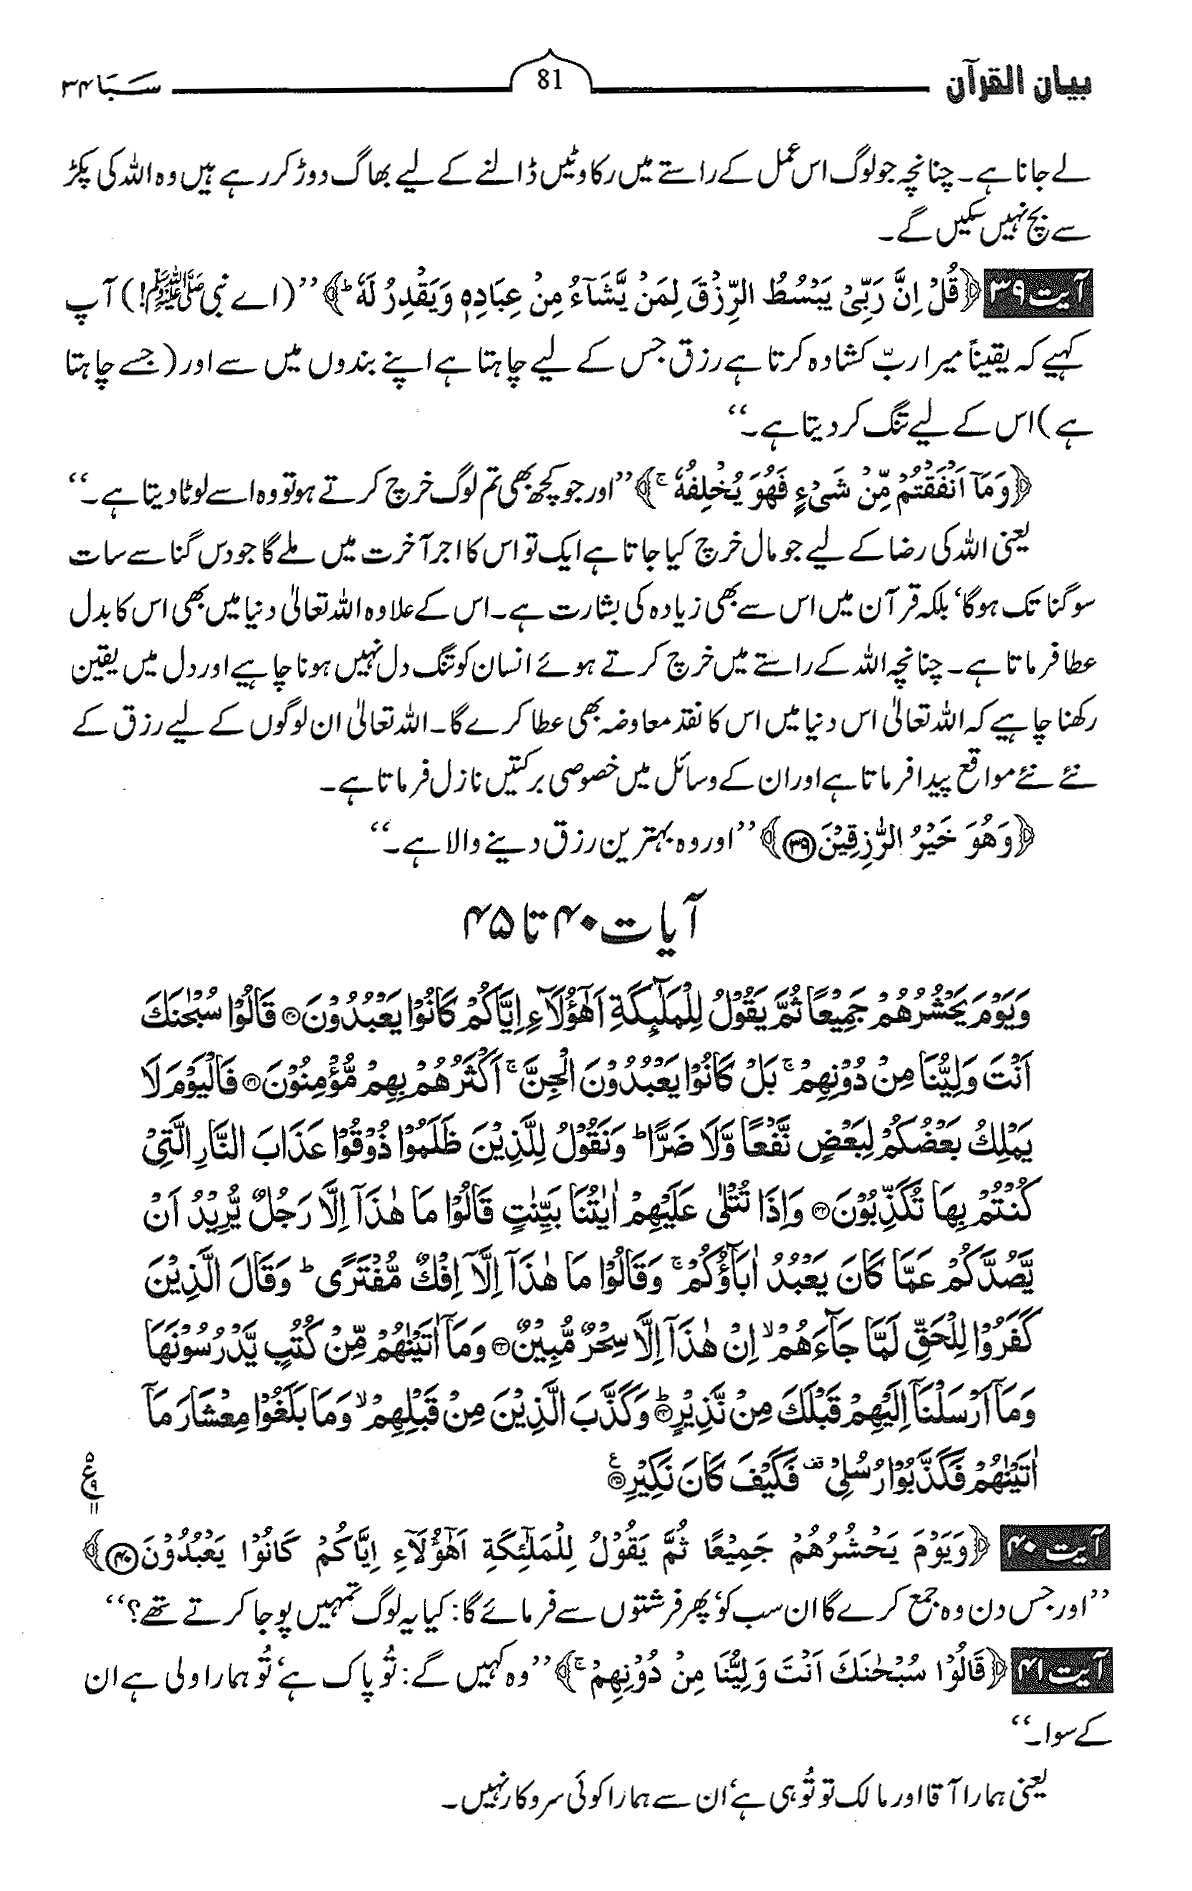 بیان القرآن 81 سَبَا ۳۴
لے جانا ہے۔ چنانچہ جو لوگ اس عمل کے راستے میں رکاوٹیں ڈالنے کے لیے بھاگ دوڑ کر رہے ہیں وہ اللہ کی پکڑ
سے بچ نہیں سکیں گے۔
آیت ۳۹ ﴿قُلْ اِنَّ رَبِّیْ یَبْسُطُ الرِّزْقَ لِمَنْ یَّشَآءُ مِنْ عِبَادِهٖ وَیَقْدِرُ لَهٗ ؕ﴾ ’’(اے نبی ﷺ!) آپ
کہیے کہ یقیناً میرا ربّ کشادہ کرتا ہے رزق جس کے لیے چاہتا ہے اپنے بندوں میں سے اور (جسے چاہتا
ہے) اس کے لیے تنگ کر دیتا ہے۔‘‘
﴿وَمَآ اَنْفَقْتُمْ مِّنْ شَیْءٍ فَهُوَ یُخْلِفُهٗ ۚ﴾ ’’اور جو کچھ بھی تم لوگ خرچ کرتے ہو تو وہ اسے لوٹا دیتا ہے۔‘‘
یعنی اللہ کی رضا کے لیے جو مال خرچ کیا جاتا ہے ایک تو اس کا اجر آخرت میں ملے گا جو دس گنا سے سات
سو گنا تک ہوگا‘ بلکہ قرآن میں اس سے بھی زیادہ کی بشارت ہے۔ اس کے علاوہ اللہ تعالیٰ دنیا میں بھی اس کا بدل
عطا فرماتا ہے۔ چنانچہ اللہ کے راستے میں خرچ کرتے ہوئے انسان کو تنگ دل نہیں ہونا چاہیے اور دل میں یقین
رکھنا چاہیے کہ اللہ تعالیٰ اس دنیا میں اس کا نقد معاوضہ بھی عطا کرے گا۔ اللہ تعالیٰ ان لوگوں کے لیے رزق کے
نئے نئے مواقع پیدا فرماتا ہے اور ان کے وسائل میں خصوصی برکتیں نازل فرماتا ہے۔
﴿وَهُوَ خَیْرُ الرّٰزِقِیْنَ ﴿۳۹﴾﴾ ’’اور وہ بہترین رزق دینے والا ہے۔‘‘
آیات ۴۰ تا ۴۵
وَیَوْمَ یَحْشُرُهُمْ جَمِیْعًا ثُمَّ یَقُوْلُ لِلْمَلٰٓىِٕكَةِ اَهٰۤؤُلَآءِ اِیَّاكُمْ كَانُوْا یَعْبُدُوْنَ ﴿۴۰﴾ قَالُوْا سُبْحٰنَكَ
اَنْتَ وَلِیُّنَا مِنْ دُوْنِهِمْ ۚ بَلْ كَانُوْا یَعْبُدُوْنَ الْجِنَّ ۚ اَكْثَرُهُمْ بِهِمْ مُّؤْمِنُوْنَ ﴿۴۱﴾ فَالْیَوْمَ لَا
یَمْلِكُ بَعْضُكُمْ لِبَعْضٍ نَّفْعًا وَّلَا ضَرًّا ؕ وَنَقُوْلُ لِلَّذِیْنَ ظَلَمُوْا ذُوْقُوْا عَذَابَ النَّارِ الَّتِیْ
كُنْتُمْ بِهَا تُكَذِّبُوْنَ ﴿۴۲﴾ وَاِذَا تُتْلٰى عَلَیْهِمْ اٰیٰتُنَا بَیِّنٰتٍ قَالُوْا مَا هٰذَآ اِلَّا رَجُلٌ یُّرِیْدُ اَنْ
یَّصُدَّكُمْ عَمَّا كَانَ یَعْبُدُ اٰبَآؤُكُمْ ۚ وَقَالُوْا مَا هٰذَآ اِلَّآ اِفْكٌ مُّفْتَرًى ؕ وَقَالَ الَّذِیْنَ
كَفَرُوْا لِلْحَقِّ لَمَّا جَآءَهُمْ ۙ اِنْ هٰذَآ اِلَّا سِحْرٌ مُّبِیْنٌ ﴿۴۳﴾ وَمَآ اٰتَیْنٰهُمْ مِّنْ كُتُبٍ یَّدْرُسُوْنَهَا
وَمَآ اَرْسَلْنَآ اِلَیْهِمْ قَبْلَكَ مِنْ نَّذِیْرٍ ؕ ﴿۴۴﴾ وَكَذَّبَ الَّذِیْنَ مِنْ قَبْلِهِمْ ۙ وَمَا بَلَغُوْا مِعْشَارَ مَآ
اٰتَیْنٰهُمْ فَكَذَّبُوْا رُسُلِیْ ۫ فَكَیْفَ كَانَ نَكِیْرِ ﴿۴۵﴾ ۵ ع ۹ ۱۱
آیت ۴۰ ﴿وَیَوْمَ یَحْشُرُهُمْ جَمِیْعًا ثُمَّ یَقُوْلُ لِلْمَلٰٓئِكَةِ اَهٰٓؤُلَآءِ اِیَّاكُمْ كَانُوْا یَعْبُدُوْنَ ﴿۴۰﴾﴾
’’اور جس دن وہ جمع کرے گا ان سب کو‘ پھر فرشتوں سے فرمائے گا: کیا یہ لوگ تمہیں پوجا کرتے تھے؟‘‘
آیت ۴۱ ﴿قَالُوْا سُبْحٰنَكَ اَنْتَ وَلِیُّنَا مِنْ دُوْنِهِمْ ۚ﴾ ’’وہ کہیں گے: تُو پاک ہے‘ تُو ہمارا ولی ہے ان
کے سوا۔‘‘
یعنی ہمارا آقا اور مالک تو تُو ہی ہے‘ ان سے ہمارا کوئی سروکار نہیں۔